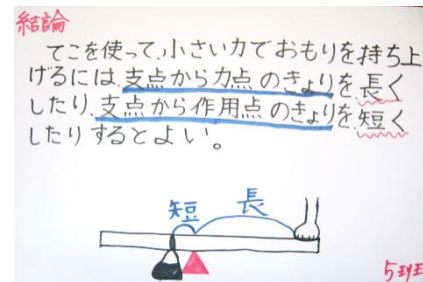 結論
てこを使って、小さい力でおもりを持ち上
げるには、支点から力点のきょりを、長く
したり、支点から作用点のきょりを、短く
したりするとよい。
短 長
5班